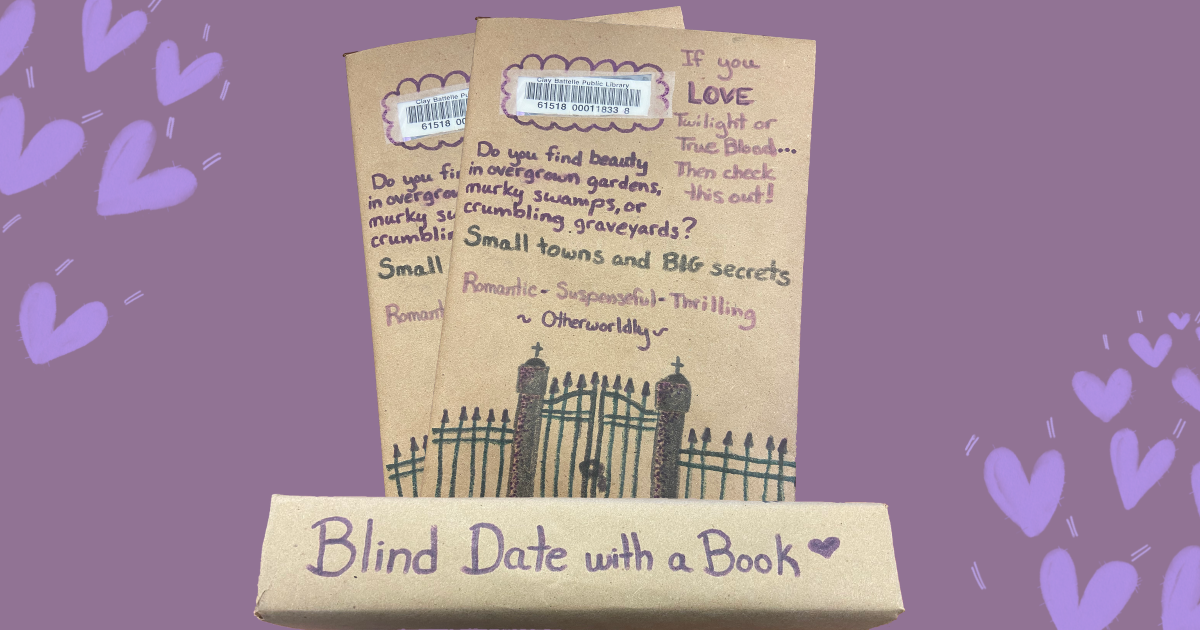 Clay Battelle Pu
61518 00
Do you fi
in overgro
murky su
crumblin
Small
Romant
Clay Battelle Public Library
61518 00011833 8
If you
LOVE
Twilight or
True Blood...
Then check
this out!
Do you find beauty
in overgrown gardens,
murky swamps, or
crumbling graveyards?
Small towns and BIG secrets
Romantic - Suspenseful - Thrilling
~ Otherworldly ~
Blind Date with a Book